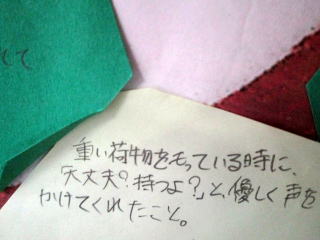 てて
重い荷物をもっている時に、
「大丈夫？持つよ？」と、優しく声を
かけてくれたこと。